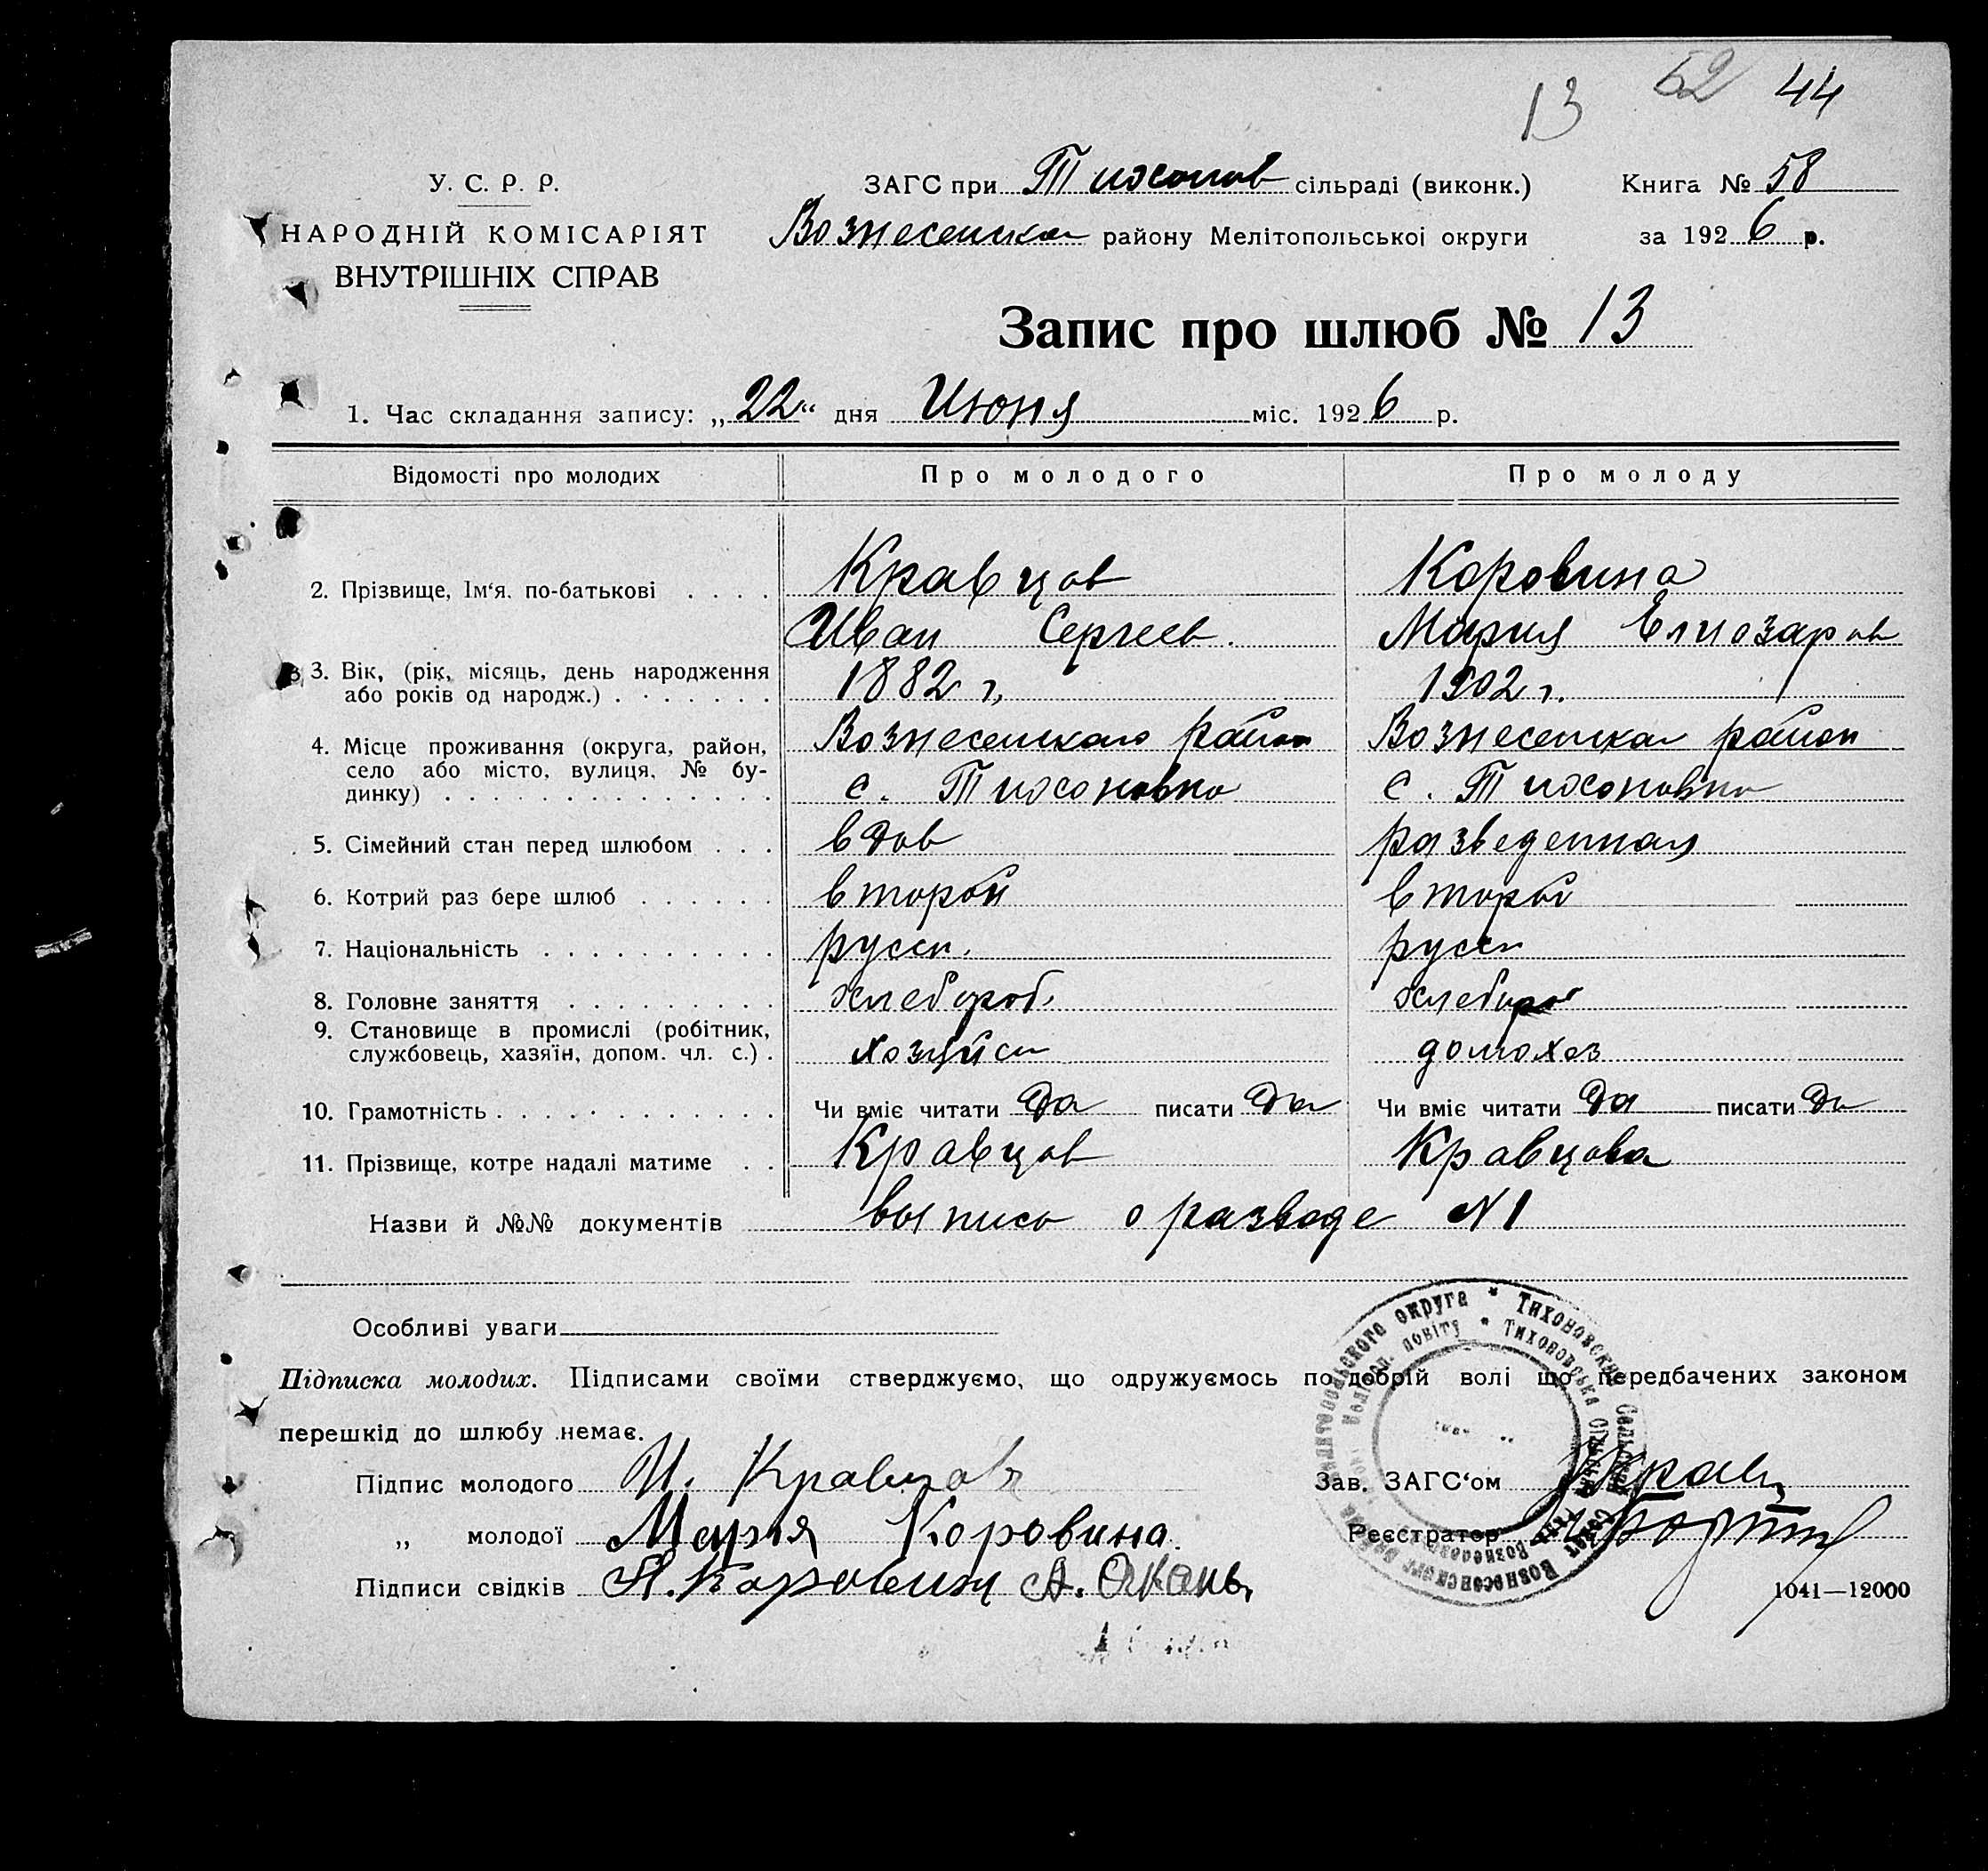 13 52 44
У. С. Р. Р.
НАРОДНІЙ КОМІСАРІЯТ
ВНУТРІШНІХ СПРАВ
ЗАГС при Тихонов сільраді (виконк.) Книга № 58
Вознесенска району Мелітопольської округи за 1926 р.
Запис про шлюб № 13
1. Час складання запису: „22“ дня Июня міс. 1926 р.
Відомості про молодих Про молодого Про молоду
2. Прізвище, Ім'я. по-батькові . . . . Кравцов Коровина
Иван Сергеев. Мария Елиозаров
3. Вік, (рік, місяць, день народження 1882 г, 1902 г.
або років од народж.) . . . . . . .
4. Місце проживання (округа, район, Вознесенкаго район Вознесенка район
село або місто, вулиця, № бу- с. Тихоновка с. Тихоновка
динку) . . . . . . . . . . . . . .
5. Сімейний стан перед шлюбом . . . вдов разведенная
6. Котрий раз бере шлюб . . . . . . второй второй
7. Національність . . . . . . . . . . русск. русск
8. Головне заняття . . . . . . . . . хлебороб. хлебороб
9. Становище в промислі (робітник,
службовець, хазяїн, допом. чл. с.) . домохоз
10. Грамотність . . . . . . . . . . . . Чи вміє читати да писати да Чи вміє читати да писати да
11. Прізвище, котре надалі матиме . . Кравцов Кравцова
Назви й №№ документів выпись о разводе N 1
Особливі уваги
Підписка молодих. Підписами своїми стверджуємо, що одружуємось по добрій волі що передбачених законом
перешкід до шлюбу немає.
Підпис молодого И. Кравцов Зав. ЗАГС'ом Кравц
„ молодої Мария Коровина. Реєстратор
Підписи свідків Коровин А.
1041—12000
Мелитопольского округа * Тихоновский Сельский Совет Вознесенского района
Меліто­п. повіту * Тихоновська Сільська Рада